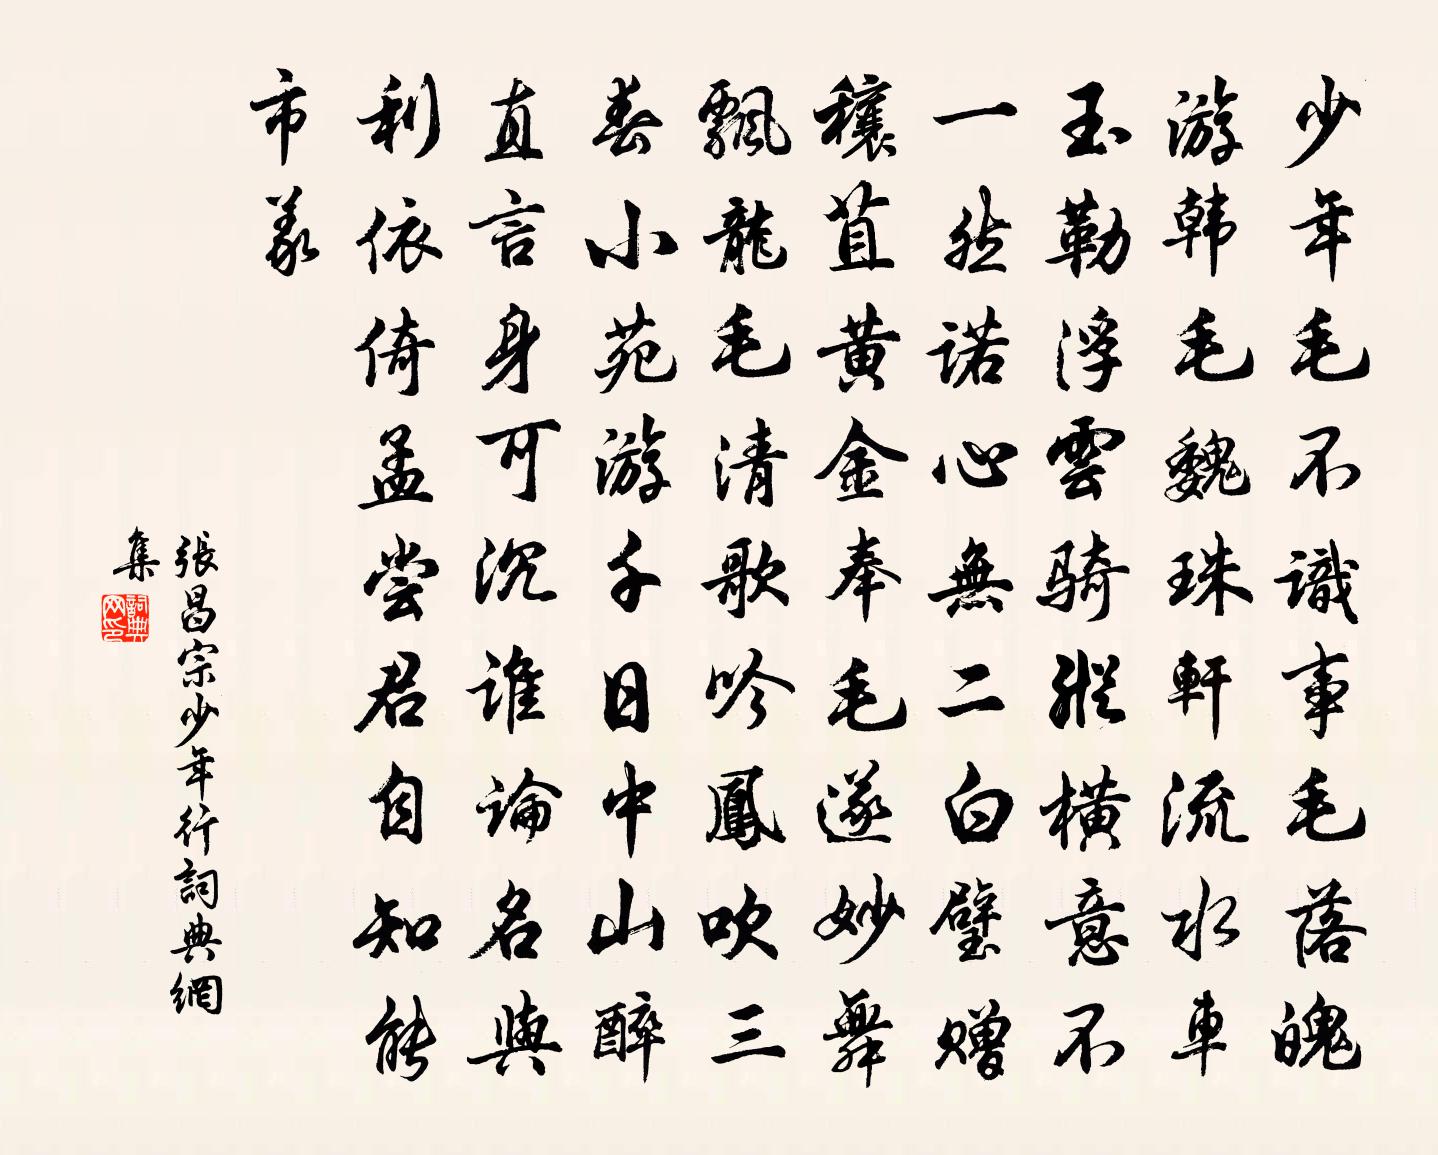 少年毛不識事毛落魄
游韩毛魏珠軒流水車
玉勒浮雲騎縱横意不
一然诺心無二白璧赠
穰苴黄金奉毛遂妙舞
飄龍毛清歌吟鳳吹三
春小苑游千日中山醉
直言身可沉谁論名與
利依倚孟尝君自知能
市義
張昌宗少年行詞典網
集
詞典网印